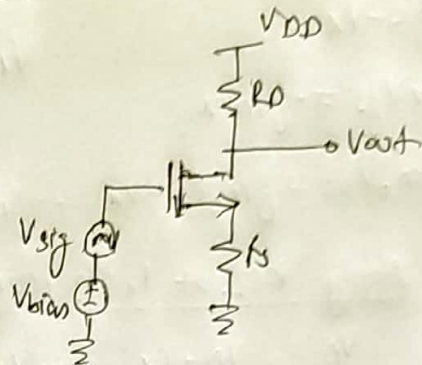 VDD
RD
Vout
Vsig
Rs
Vbias